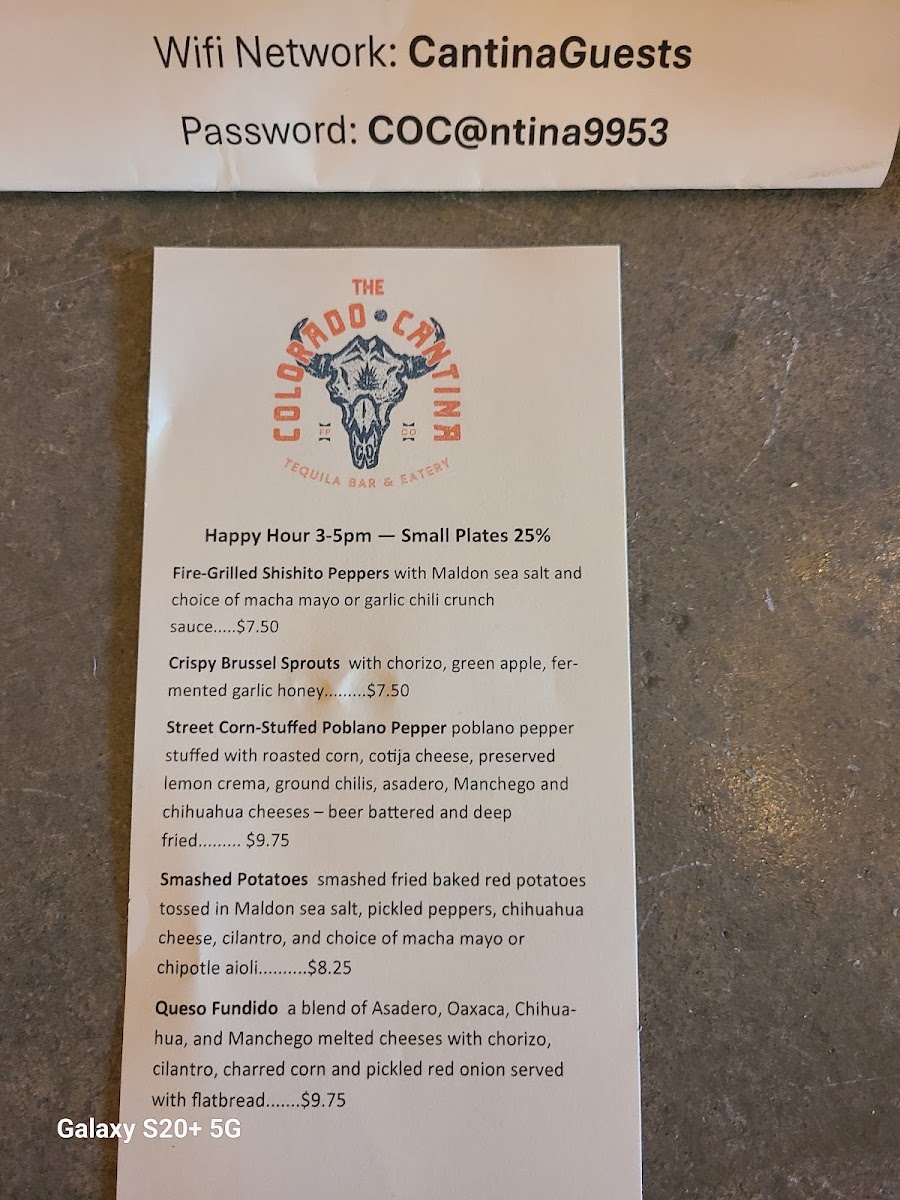 Wifi Network: CantinaGuests
Password: COC@ntina9953
THE
COLORADO • CANTINA
FP CO
CO
TEQUILA BAR & EATERY
Happy Hour 3-5pm — Small Plates 25%
Fire-Grilled Shishito Peppers with Maldon sea salt and
choice of macha mayo or garlic chili crunch
sauce.....$7.50
Crispy Brussel Sprouts with chorizo, green apple, fer-
mented garlic honey.........$7.50
Street Corn-Stuffed Poblano Pepper poblano pepper
stuffed with roasted corn, cotija cheese, preserved
lemon crema, ground chilis, asadero, Manchego and
chihuahua cheeses – beer battered and deep
fried......... $9.75
Smashed Potatoes smashed fried baked red potatoes
tossed in Maldon sea salt, pickled peppers, chihuahua
cheese, cilantro, and choice of macha mayo or
chipotle aioli..........$8.25
Queso Fundido a blend of Asadero, Oaxaca, Chihua-
hua, and Manchego melted cheeses with chorizo,
cilantro, charred corn and pickled red onion served
with flatbread.......$9.75
Galaxy S20+ 5G